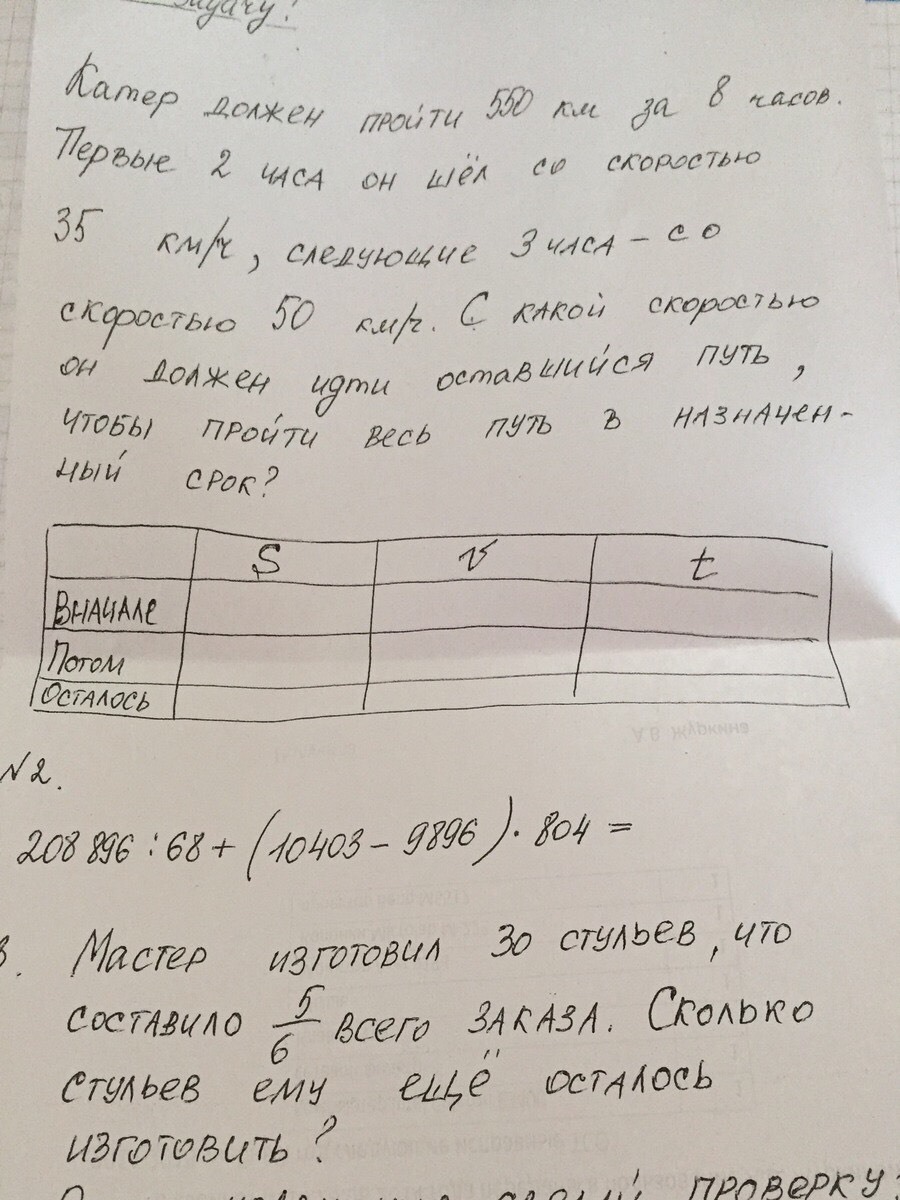 задачу!
Катер должен пройти 550 км за 8 часов.
Первые 2 часа он шёл со скоростью
35 км/ч, следующие 3 часа – со
скоростью 50 км/ч. С какой скоростью
он должен идти оставшийся путь,
чтобы пройти весь путь в назначен-
ный срок?
S v t
Вначале
Потом
Осталось
А.В. Журкина
N2.
208 896 : 68 + (10403 – 9896) · 804 =
3. Мастер изготовил 30 стульев, что
составило 5/6 всего заказа. Сколько
стульев ему ещё осталось
изготовить?
проверку: